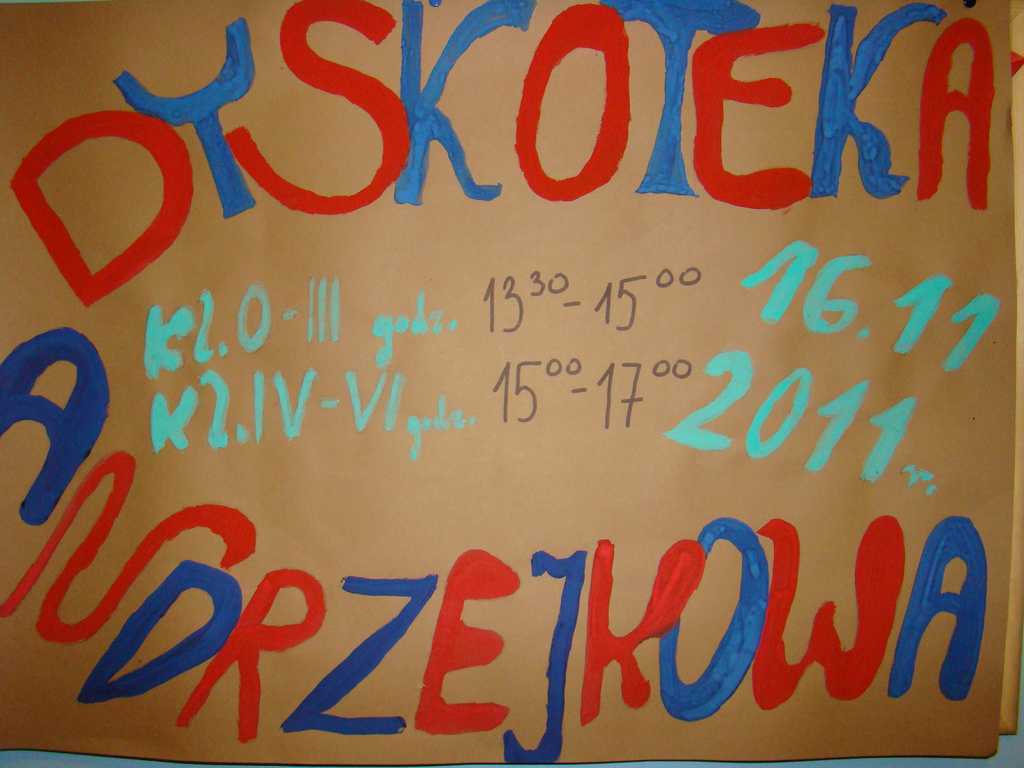 DYSKOTEKA
Kl. 0-III godz. 13³⁰-15⁰⁰ 16.11
Kl. IV-VI godz. 15⁰⁰-17⁰⁰ 2011 r.
ANDRZEJKOWA